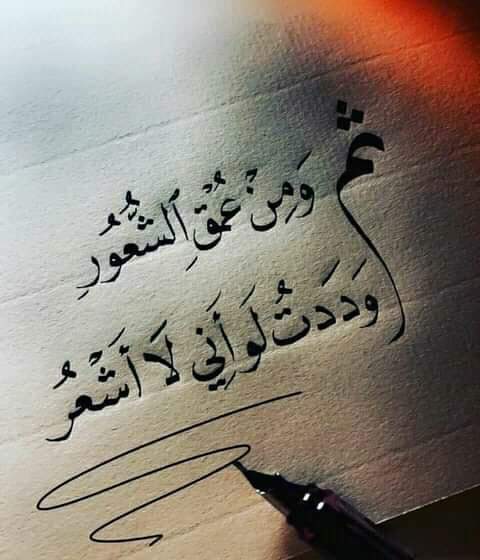 ثم
وَمِنْ عُمْقِ ٱلشُّعُورِ
وَدَدَتُ لَوَ أَنَِي لَا أَشْعَرُ